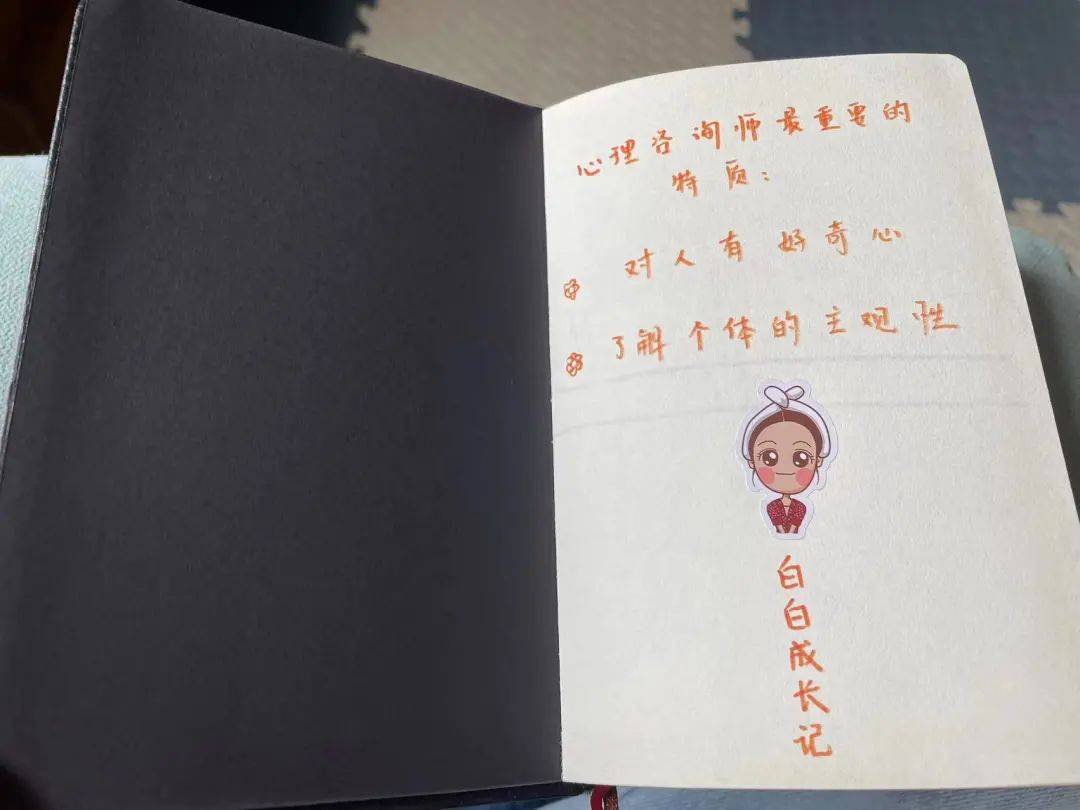 心理咨询师最重要的
特质：
对人有好奇心
了解个体的主观性
白白成长记